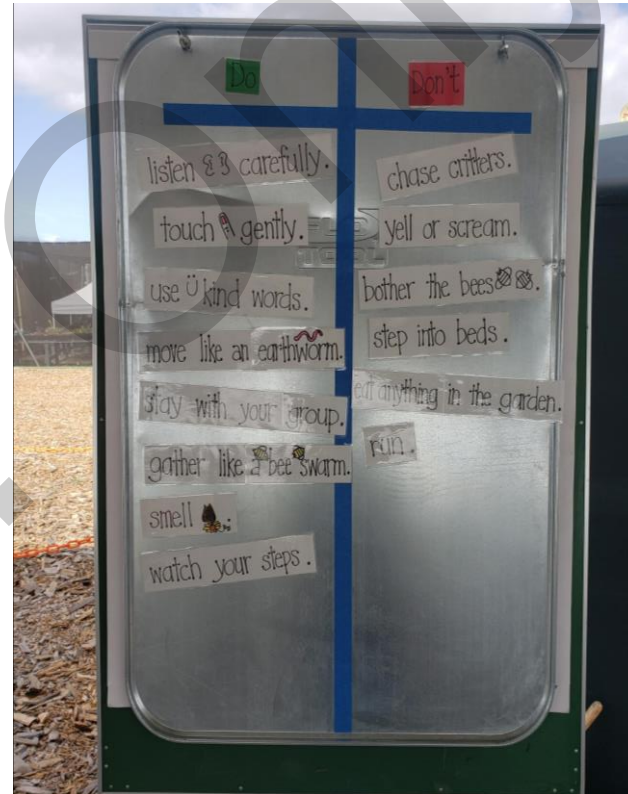 Do
Don't
listen carefully.
touch gently.
use kind words.
move like an earthworm.
stay with your group.
gather like a bee swarm.
smell
watch your steps.
chase critters.
yell or scream.
bother the bees
step into beds.
eat anything in the garden.
run.
TOOL